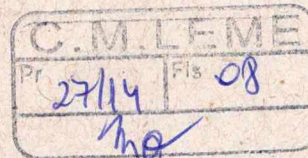 C.M.LEME
Pr 27/14 Fls 08